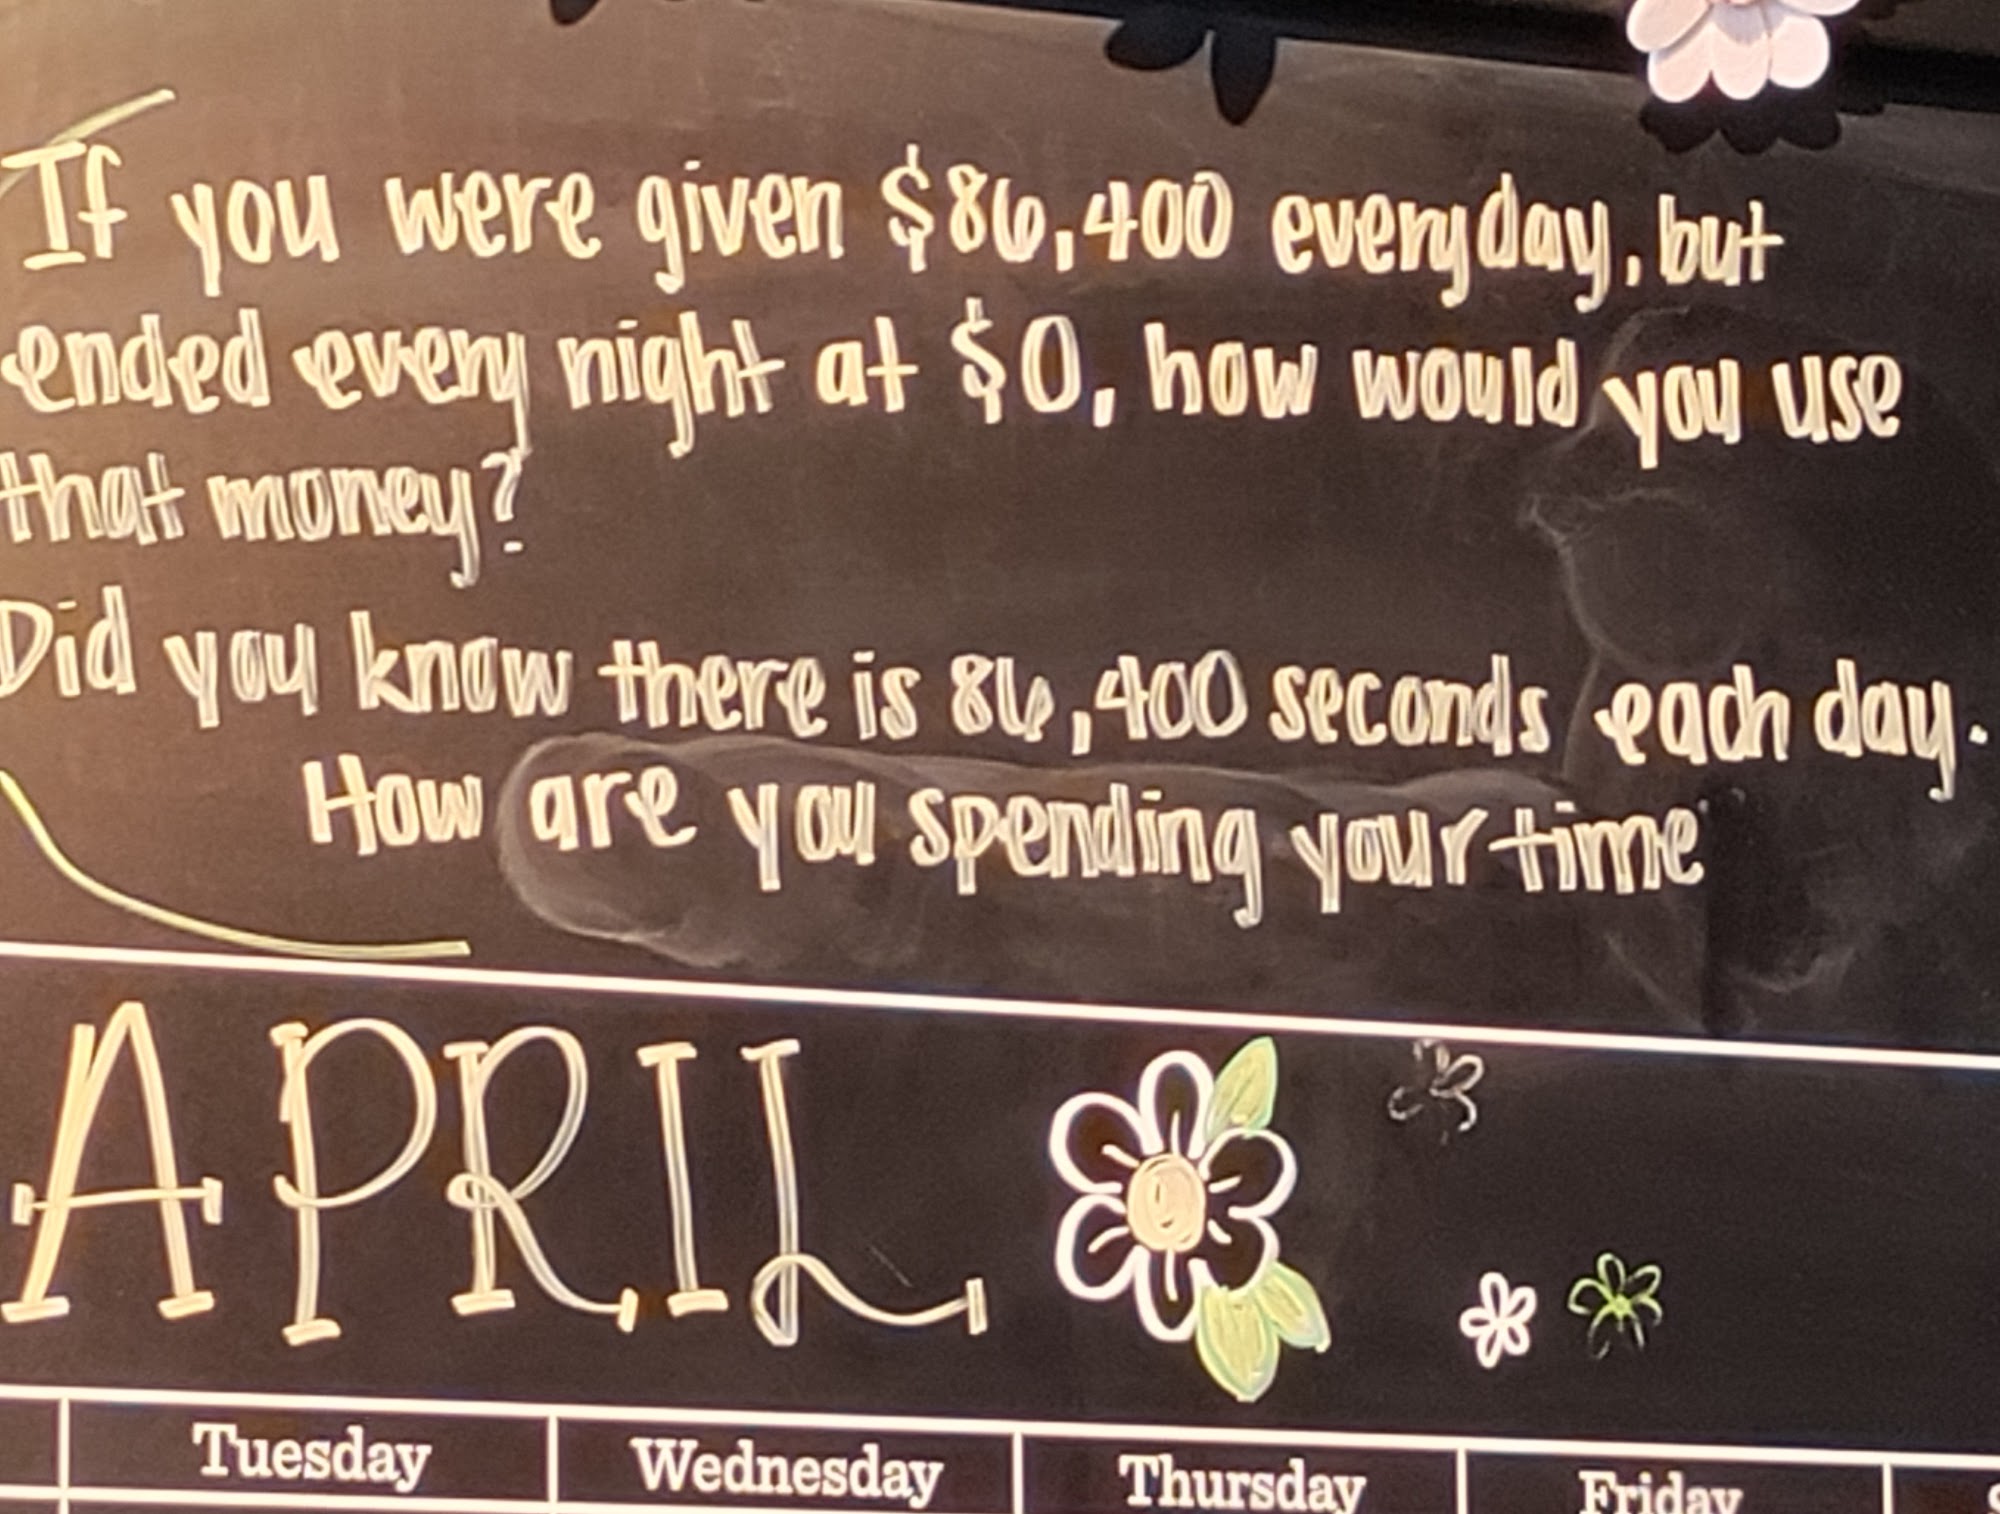 If you were given $86,400 everyday, but
ended every night at $0, how would you use
that money?
Did you know there is 86,400 seconds each day.
How are you spending your time
APRIL
Tuesday Wednesday Thursday Friday